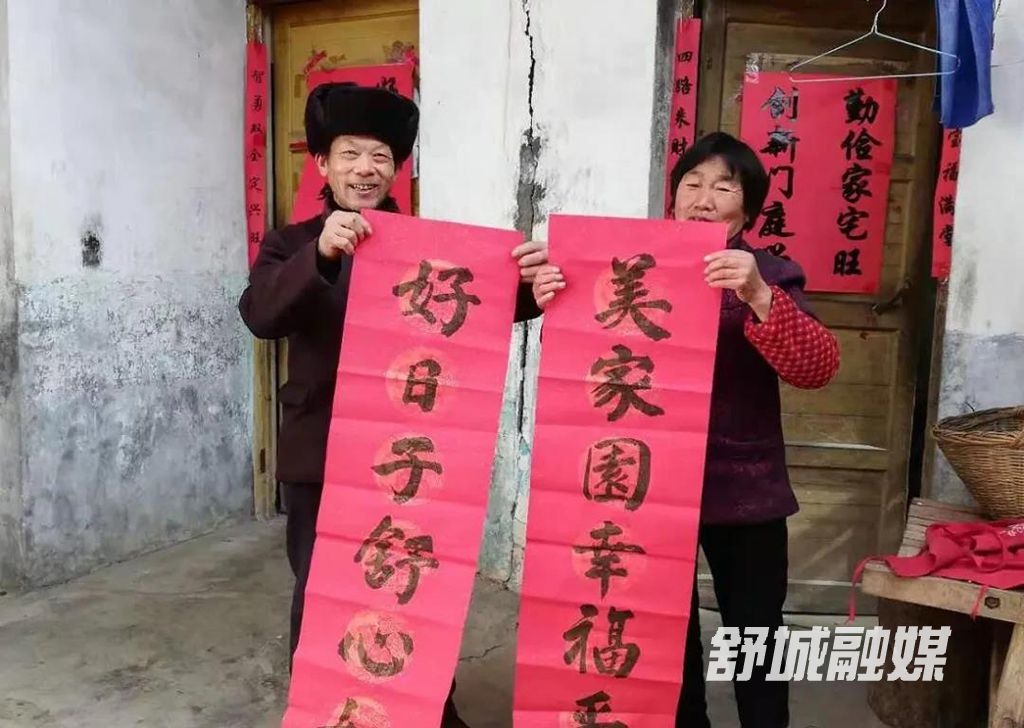 好日子舒心
美家园幸福
智勇双全定兴旺
四路来财
勤俭家宅旺
创新门庭
宝福满堂
舒城融媒